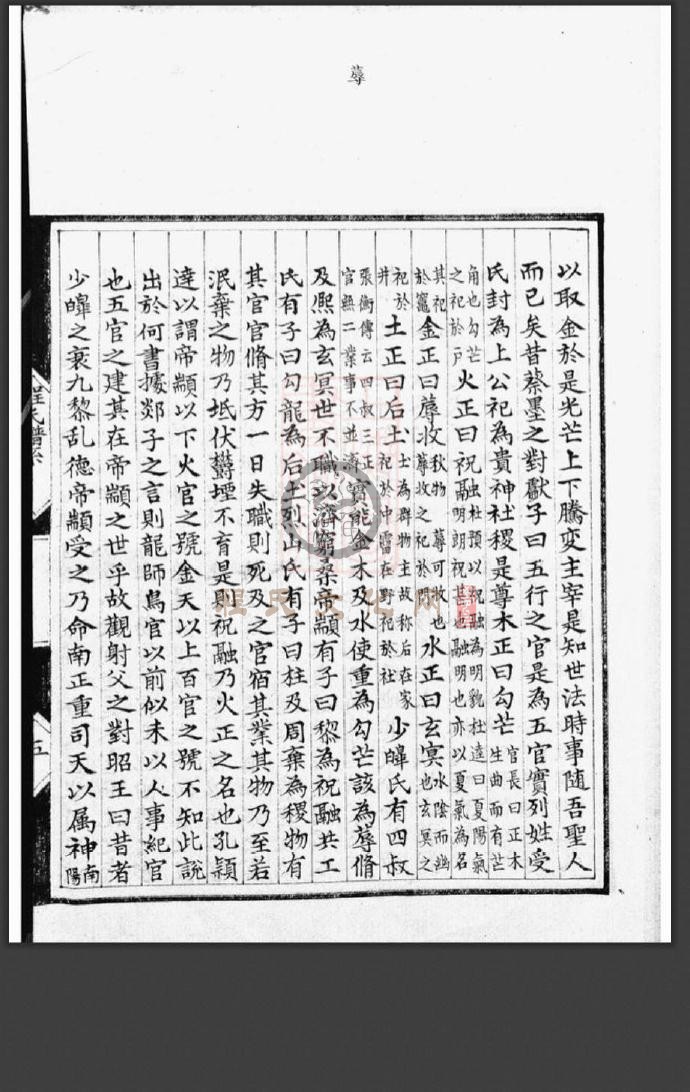 蓐
以取金於是光芒上下騰变主宰是知世法時事随吾聖人
而已矣昔蔡墨之對獻子曰五行之官是為五官實列姓受
氏封為上公祀為貴神社稷是尊木正曰勾芒官長曰正木生曲而有芒
角也勾芒之祀於戸火正曰祝融杜預以祝融為明貌杜逵曰夏陽氣明朗祝甚也融明也亦以夏氣為名
其祀於竈金正曰蓐收秋物蓐可收也蓐收之祀於門水正曰玄冥水陰而幽也玄冥之
祀於井土正曰后土土為群物主故称后在家祀於中霤在野祀於社少皞氏有四叔
張衡傳云四叔三正官無二業事不並濟實能金木及水使重為勾芒該為蓐脩
及熈為玄冥世不職以濟窮桑帝顓有子曰黎為祝融共工
氏有子曰勾龍為后土烈山氏有子曰柱及周棄為稷物有
其官官脩其方一日失職則死及之官宿其業其物乃至若
泯棄之物乃坻伏欝堙不育是則祝融乃火正之名也孔頴
達以謂帝顓以下火官之號金天以上百官之號不知此說
出於何書據郯子之言則龍師鳥官以前似未以人事紀官
也五官之建其在帝顓之世乎故觀射父之對昭王曰昔者
少皞之衰九黎乱德帝顓受之乃命南正重司天以属神南陽
程氏譜系
五
程氏文化网